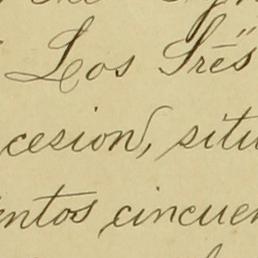 Los Srēs
cesion, situ
entos cincuen